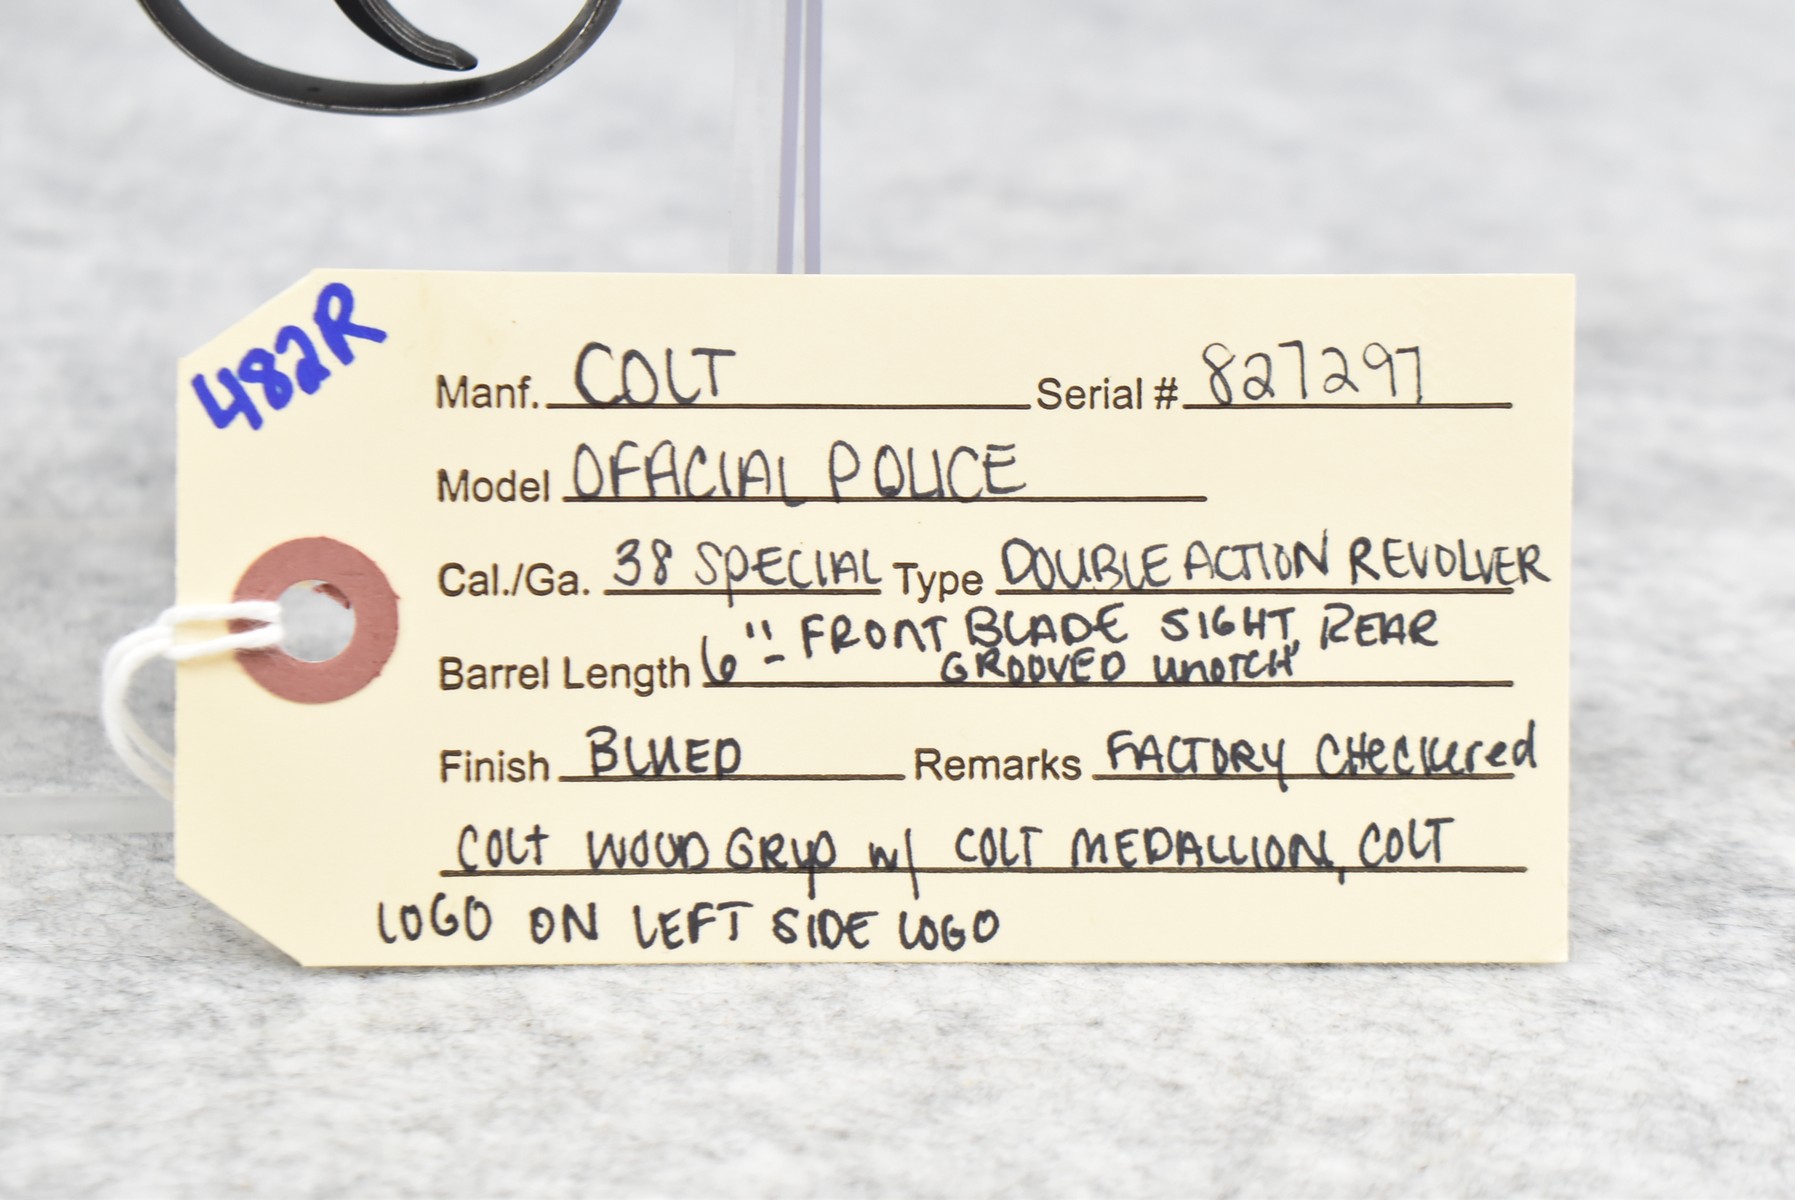 482R
Manf. COLT Serial # 827297
Model OFFICIAL POLICE
Cal./Ga. 38 SPECIAL Type DOUBLE ACTION REVOLVER
Barrel Length 6" - FRONT BLADE SIGHT, REAR
GROOVED UNOTCH
Finish BLUED Remarks FACTORY CHECKERED
COLT WOOD GRIP W/ COLT MEDALLION, COLT
LOGO ON LEFT SIDE LOGO